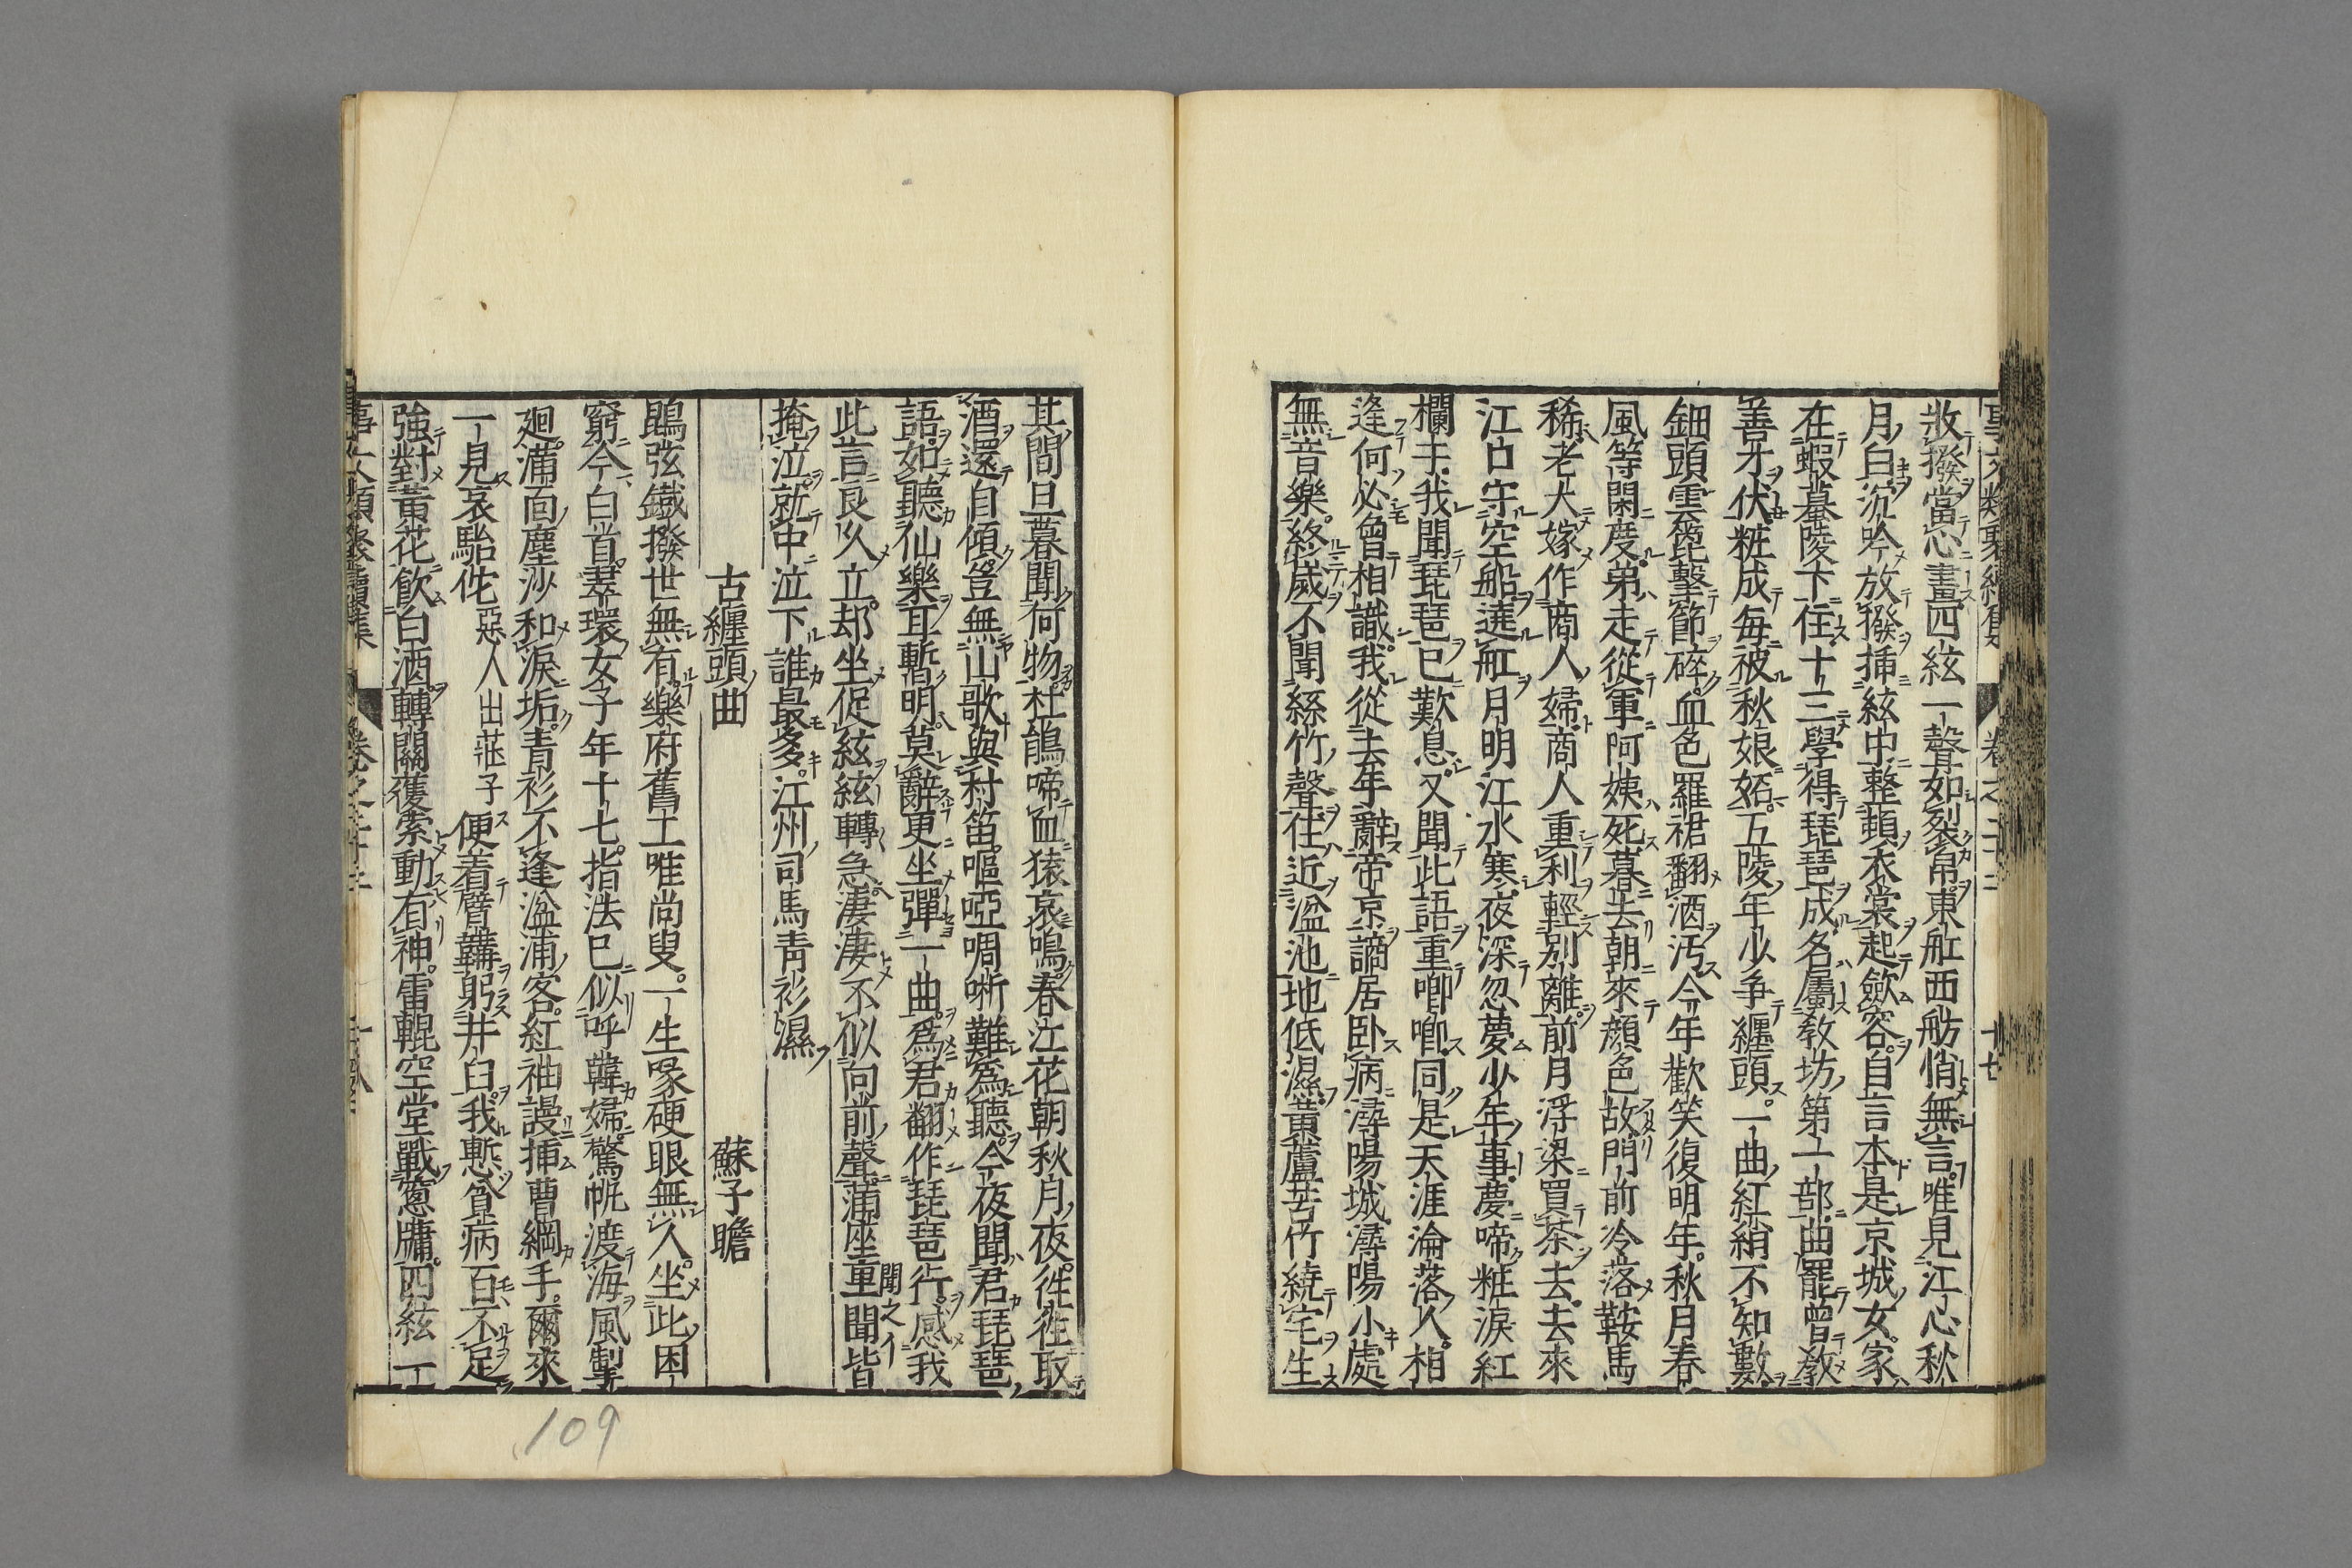 收撥當心畫四絃一聲如裂帛東舡西舫悄無言唯見江心秋
月白沉吟放撥揷絃中整頓衣裳起歛容自言本是京城女家
在蝦蟇陵下住十三學得琵琶成名屬教坊第一部曲罷曾教
善才伏粧成每被秋娘妬五陵年少争纏頭一曲紅綃不知數
鈿頭雲篦擊節碎血色羅裙翻酒汚今年歡笑復明年秋月春
風等閑度弟走從軍阿姨死暮去朝來顔色故門前冷落鞍馬
稀老大嫁作商人婦商人重利輕別離前月浮梁買茶去去來
江口守空船遶舡月明江水寒夜深忽夢少年事夢啼粧淚紅
欄干我聞琵琶已歎息又聞此語重唧唧同是天涯淪落人相
逢何必曾相識我從去年辭帝京謫居卧病潯陽城潯陽小處
無音樂終歲不聞絲竹聲住近湓池地低濕黃蘆苦竹繞宅生
其間旦暮聞何物杜鵑啼血猿哀鳴春江花朝秋月夜徃徃取
酒還自傾豈無山歌與村笛嘔啞啁哳難爲聽今夜聞君琵琶
語如聽仙樂耳暫明莫辭更坐彈一曲爲君翻作琵琶行感我
此言良久立却坐促絃絃轉急淒淒不似向前聲蒲座重聞皆
聞之イ
掩泣就中泣下誰最多江州司馬青衫濕
古纏頭曲 蘇子瞻
鵾弦鐵撥世無有樂府舊工唯尚叟一生喙硬眼無人坐此困
窮今白首翠環女子年十七指法已似呼韓婦驚帆渡海風掣
廻滿面塵沙和淚垢青衫不逢湓浦客紅袖謾揷曹綱手爾來
一見哀駘佗惡人出莊子便着臂韝躬井臼我慙貧病百不足
強對黃花飲白酒轉關䕶索動有神雷輥空堂戰䆫牖四絃一
109